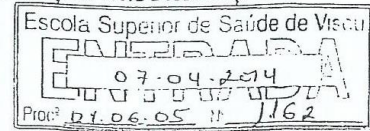 Escola Superior de Saúde de Viseu
ENTRADA
07-04-2014
Procº 01.06.05 Nº 1162